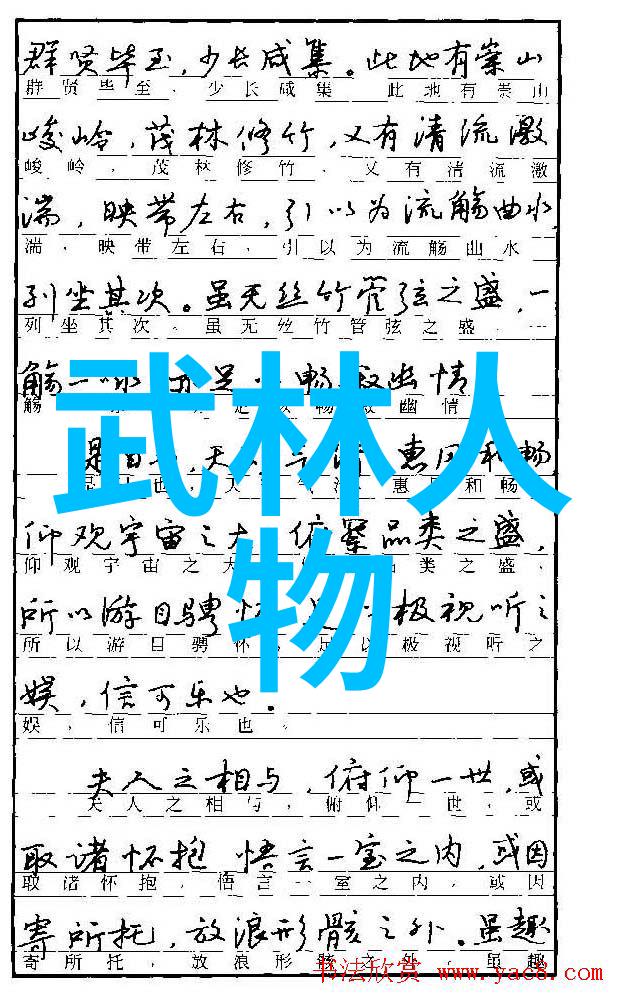 群贤毕至，少长咸集。此地有崇山
群贤毕至，少长咸集。此地有崇山
峻岭，茂林修竹，又有清流激
峻岭，茂林修竹，又有清流激
湍，映带左右，引以为流觞曲水，
湍，映带左右，引以为流觞曲水
列坐其次。虽无丝竹管弦之盛，一
列坐其次。虽无丝竹管弦之盛，一
觞一咏 亦足以畅叙幽情
觞 畅叙幽情
武林人
是日也，天 气清 惠风和畅
也，天 气清 惠风和畅
仰观宇宙之大 俯察品类之盛，
仰观宇宙之大 类之盛，
物
所以游目骋怀 足以极视听之
所以游目骋怀，足以极视听之
娱，信可乐也。
娱，信可乐也。
夫人之相与，俯仰一世，或
夫人之相与，俯仰一世，或
取诸怀抱 悟言一室之内，或因
取诸怀抱，悟言一室之内，或因
寄所托，放浪形骸之外。虽趣
寄所托，放浪形骸之外。虽趣
书法欣赏 www.yac8.com